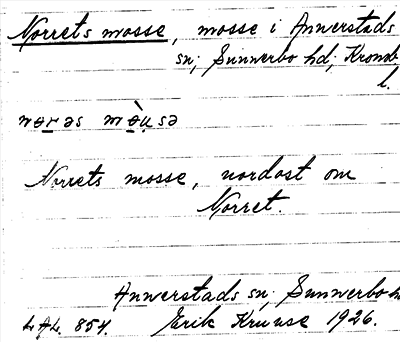 Norrets mosse, mosse i Annerstads
sn; Sunnerbo hd; Kronob
l.
Norrets mosse, nordost om
Norret.
Annerstads sn; Sunnerbo h
L.A.L. 854. Erik Kruuse 1926.